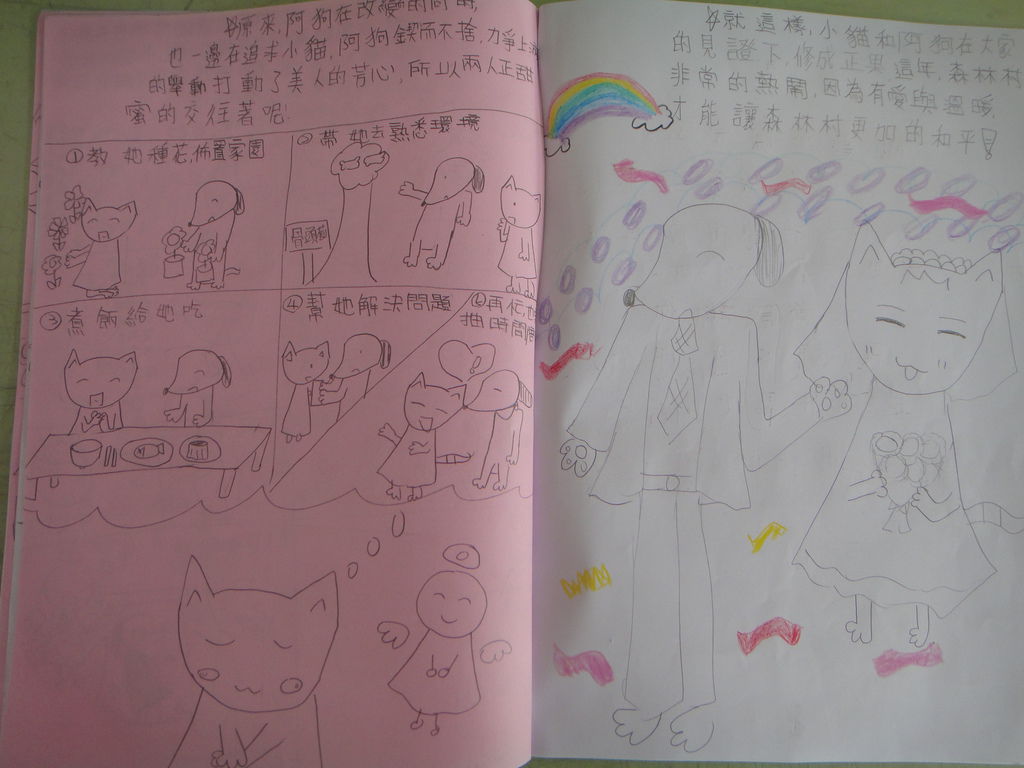 原來,阿狗在改變的同時,
也一邊在追求小貓,阿狗鍥而不捨,力爭上游
的舉動打動了美人的芳心,所以兩人正甜
蜜的交往著呢!
①教她種花,佈置家園
②帶她去熟悉環境
骨頭樹
③煮飯給她吃
④幫她解決問題
⑤再忙也
抽時間陪
就這樣,小貓和阿狗在大家
的見證下,修成正果,這年,森林村
非常的熱鬧,因為有愛與溫暖,
才能讓森林村更加的和平!